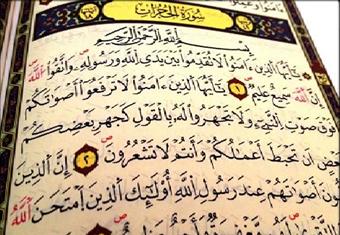 سُورَةُ الْحُجُرَاتِ
بِسْمِ اللَّهِ الرَّحْمَٰنِ الرَّحِيمِ
يَا أَيُّهَا الَّذِينَ آمَنُوا لَا تُقَدِّمُوا بَيْنَ يَدَيِ اللَّهِ وَرَسُولِهِ وَاتَّقُوا اللَّهَ
إِنَّ اللَّهَ سَمِيعٌ عَلِيمٌ ١ يَا أَيُّهَا الَّذِينَ آمَنُوا لَا تَرْفَعُوا أَصْوَاتَكُمْ
فَوْقَ صَوْتِ النَّبِيِّ وَلَا تَجْهَرُوا لَهُ بِالْقَوْلِ كَجَهْرِ بَعْضِكُمْ
أَنْ تَحْبَطَ أَعْمَالُكُمْ وَأَنْتُمْ لَا تَشْعُرُونَ ٢ إِنَّ الَّذِينَ
أَصْوَاتَهُمْ عِنْدَ رَسُولِ اللَّهِ أُولَٰئِكَ الَّذِينَ امْتَحَنَ اللَّهُ